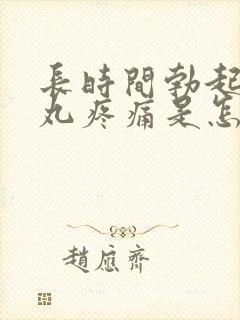 長時間勃起
丸疼痛是怎
趙應齊